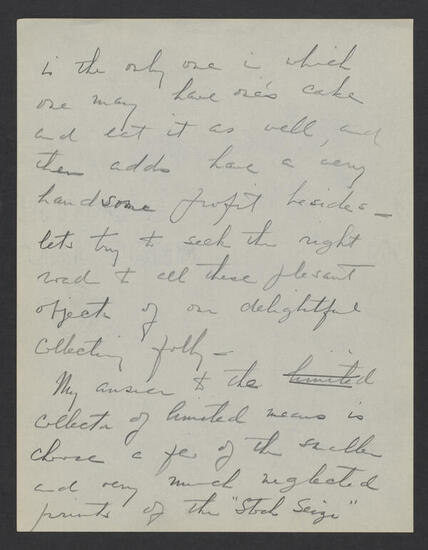 is the only one in which
one may have one's cake
and eat it as well, and
then adds have a very
handsome profit besides –
lets try to seek the right
road to all these pleasant
objects of our delightful
collecting folly –
My answer to the limited
collector of limited means is
choose a few of the smaller
and very much neglected
prints of the "Stock Seize"